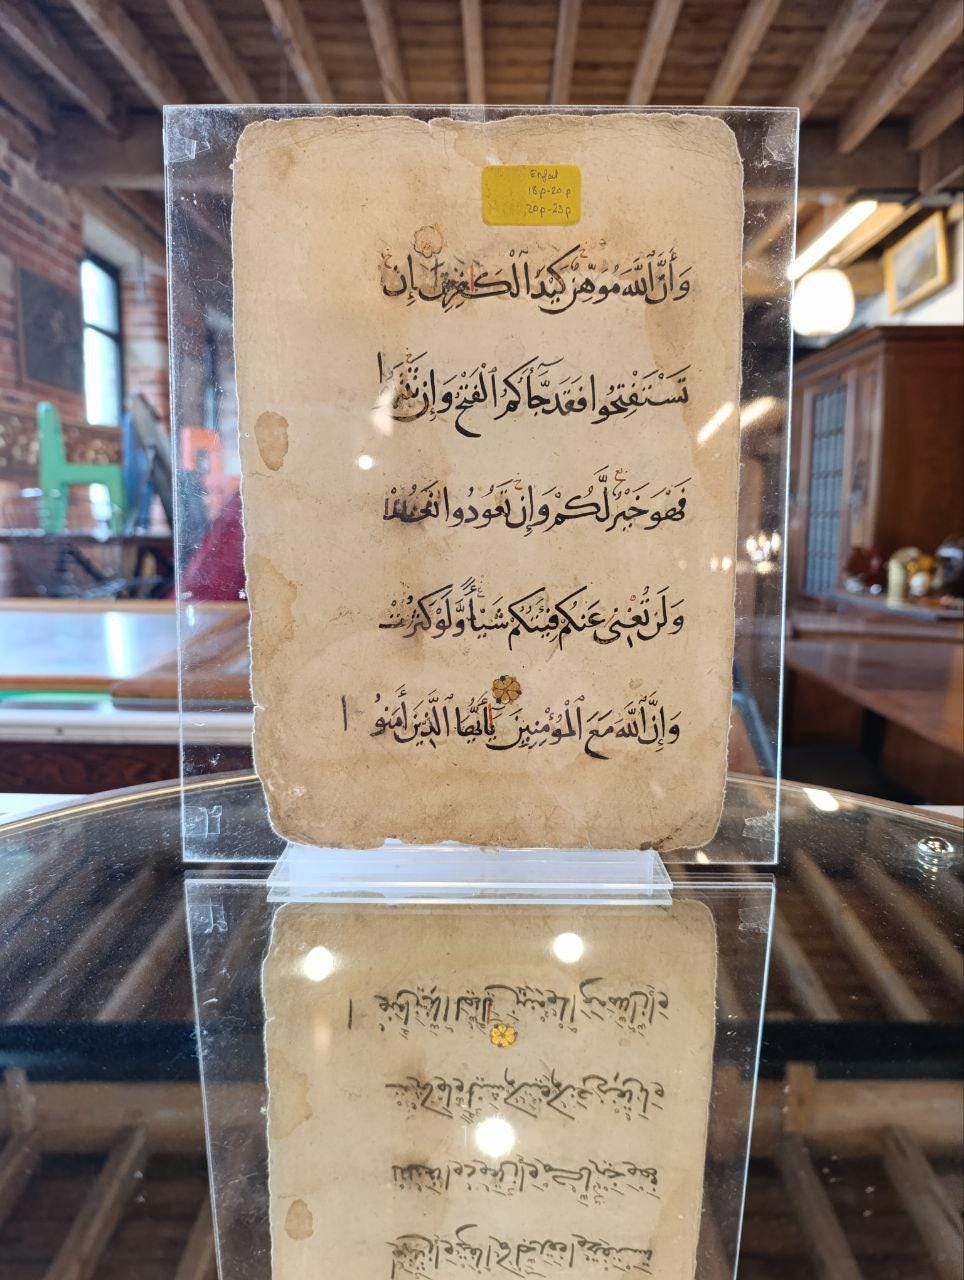 Enfal
18p-20p
20p-23p
وَأَنَّ ٱللَّهَ مُوَهِّنٌ كَيْدَ ٱلْكَٰفِرِينَ إِن
تَسْتَفْتِحُوا فَقَدْ جَّآءَكُمُ ٱلْفَتْحُ وَإِن تَنتَهُوا
فَهُوَ خَيْرٌ لَّكُمْ وَإِن تَعُودُوا نَعُدْ
وَلَن تُغْنِىَ عَنكُمْ فِئَتُكُمْ شَيْـًٔا وَّلَوْ كَثُرَتْ
وَإِنَّ ٱللَّهَ مَعَ ٱلْمُؤْمِنِينَ يَٰٓأَيُّهَا ٱلَّذِينَ ءَامَنُوا